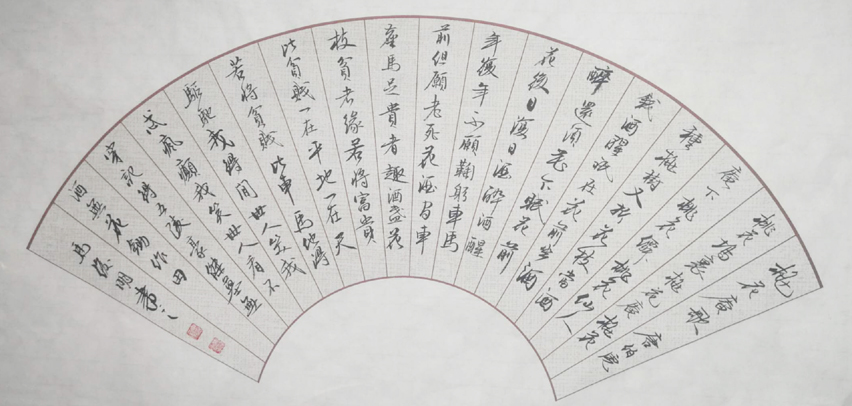 桃花庵歌 唐伯虎
桃花塢裏桃花庵桃花
庵下桃花仙桃花仙人
種桃樹又折花枝當酒
錢酒醒只在花前坐酒
醉還須花下眠花前
花後日復日酒醉酒醒
年復年不願鞠躬車馬
前但願老死花酒間車
塵馬足貴者趣酒盞花
枝貧者緣若將富貴
比貧賤一在平地一在天
若將貧賤比車馬他得
驅馳我得閒世人笑我
忒瘋癲我笑世人看不
穿記得五陵豪傑墓無
酒無花鋤作田
馬俊明書